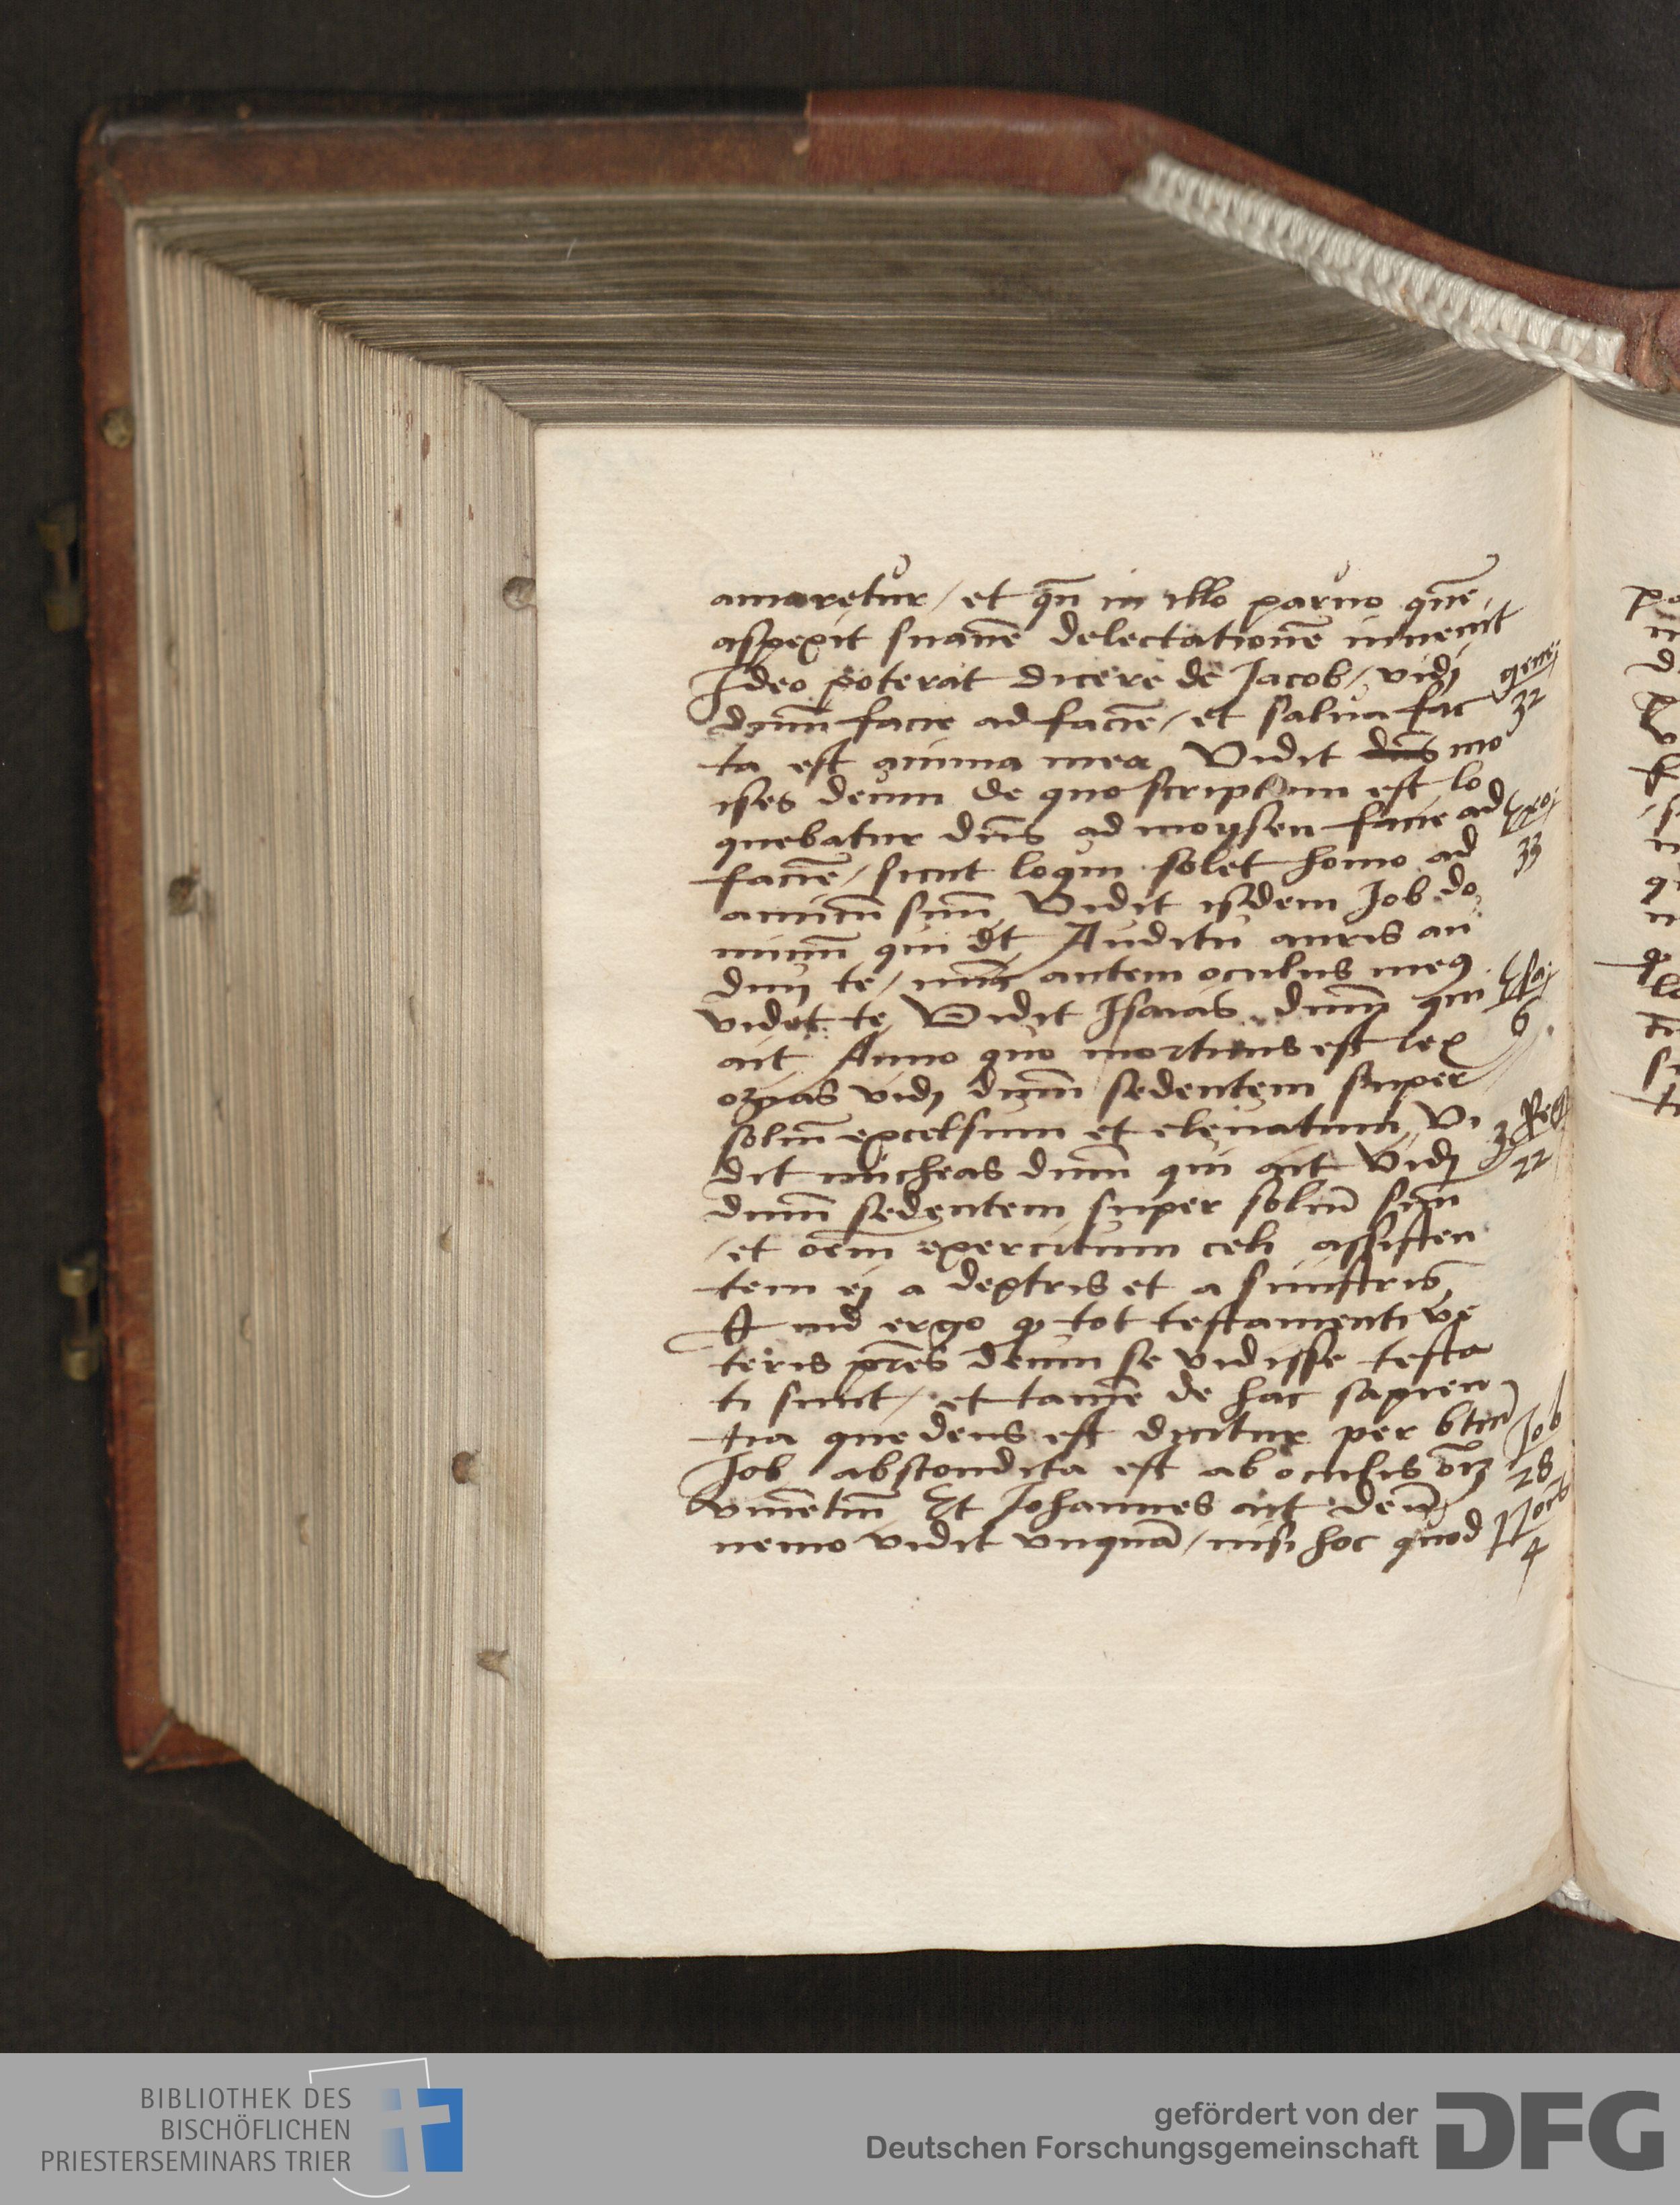 amaretur / et qn̄ in illo paruo quē
aspexit suauē delectationē inuenit
Ideo poterat dicere de Jacob / vidj
dnūm facie ad faciē / et salua fac
ta est anima mea Vidit dn̄s mo
ises deum de quo scriptum est lo
quebatur dn̄s ad moysen facie ad
faciē / sicut loqui solet homo ad
amicū suū Vidit isdem Job do
minū qui dt̄ Auditu auris au
diuj te / nūc autem oculus meꝯ
videt te Vidit Isaias dnūm qui
ait Anno quo mortuus est rex
ozias vidj dnūm sedentem super
soliū excelsum et eleuatum Vi
dit micheas dnūm qui ait Vidj
dnūm sedentem super soliū suū
/ et oēm exercitum celi assisten
tem ej a dextris et a sinistris
Quid ergo ꝙ tot testamenti ve
teris pr̄es deum se vidisse testa
ti sunt / et tamē de hac sapien
tia que deus est dicitur per btūm
Job abscondita est ab oculis oīm
viuētiū Et Johannes ait deū
nemo vidit vnquā / nisi hoc quod
genej
32
Exoj
33
Esaj
6
3 Reg
22
Job
28
4
BIBLIOTHEK DES
BISCHÖFLICHEN
PRIESTERSEMINARS TRIER
gefördert von der
Deutschen Forschungsgemeinschaft
DFG